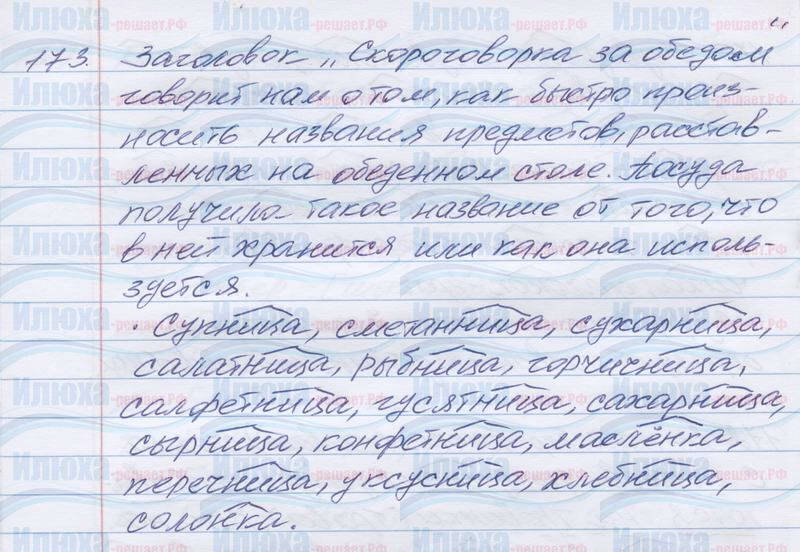 173. Заголовок „Скороговорка за обедом"
говорит нам о том, как быстро произ-
носить названия предметов, расстав-
ленных на обеденном столе. Посуда
получила такое название от того, что
в ней хранится или как она исполь-
зуется.
Супница, сметанница, сухарница,
салатница, рыбница, горчичница,
салфетница, гусятница, сахарница,
сырница, конфетница, маслёнка,
перечница, уксусница, хлебница,
солонка.